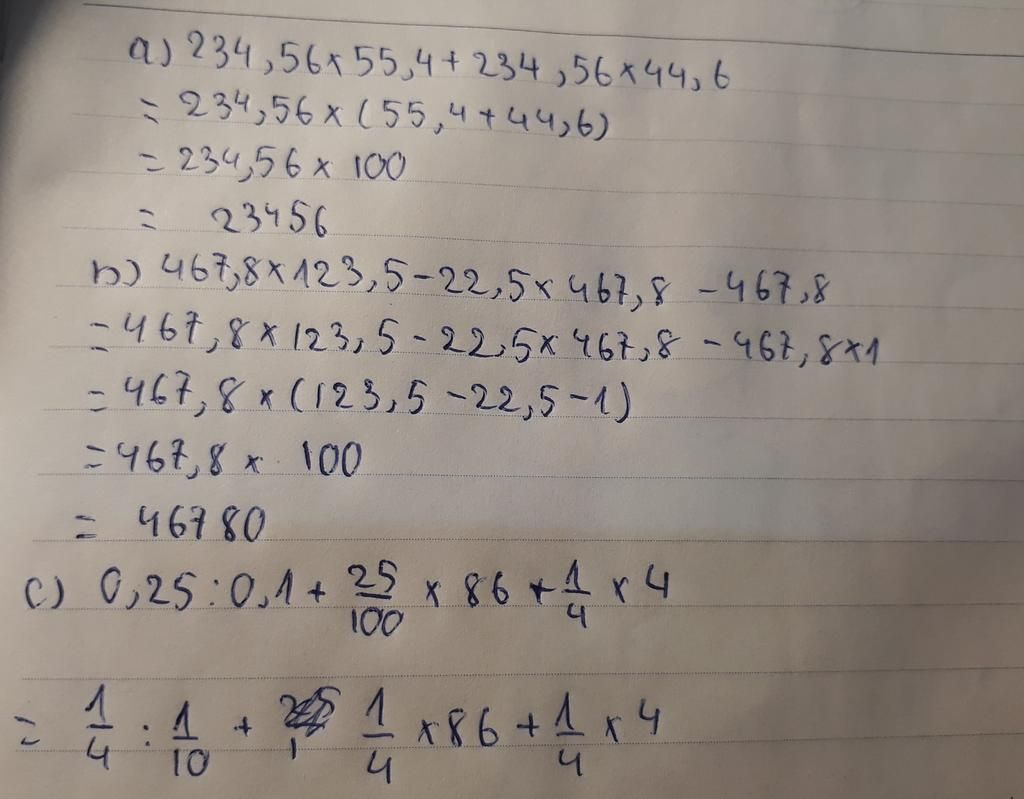 a) 234,56 x 55,4 + 234,56 x 44,6
= 234,56 x (55,4 + 44,6)
= 234,56 x 100
= 23456
b) 467,8 x 123,5 - 22,5 x 467,8 - 467,8
= 467,8 x 123,5 - 22,5 x 467,8 - 467,8 x 1
= 467,8 x (123,5 - 22,5 - 1)
= 467,8 x 100
= 46780
c) 0,25 : 0,1 + 25/100 x 86 + 1/4 x 4
= 1/4 : 1/10 + 1/4 x 86 + 1/4 x 4